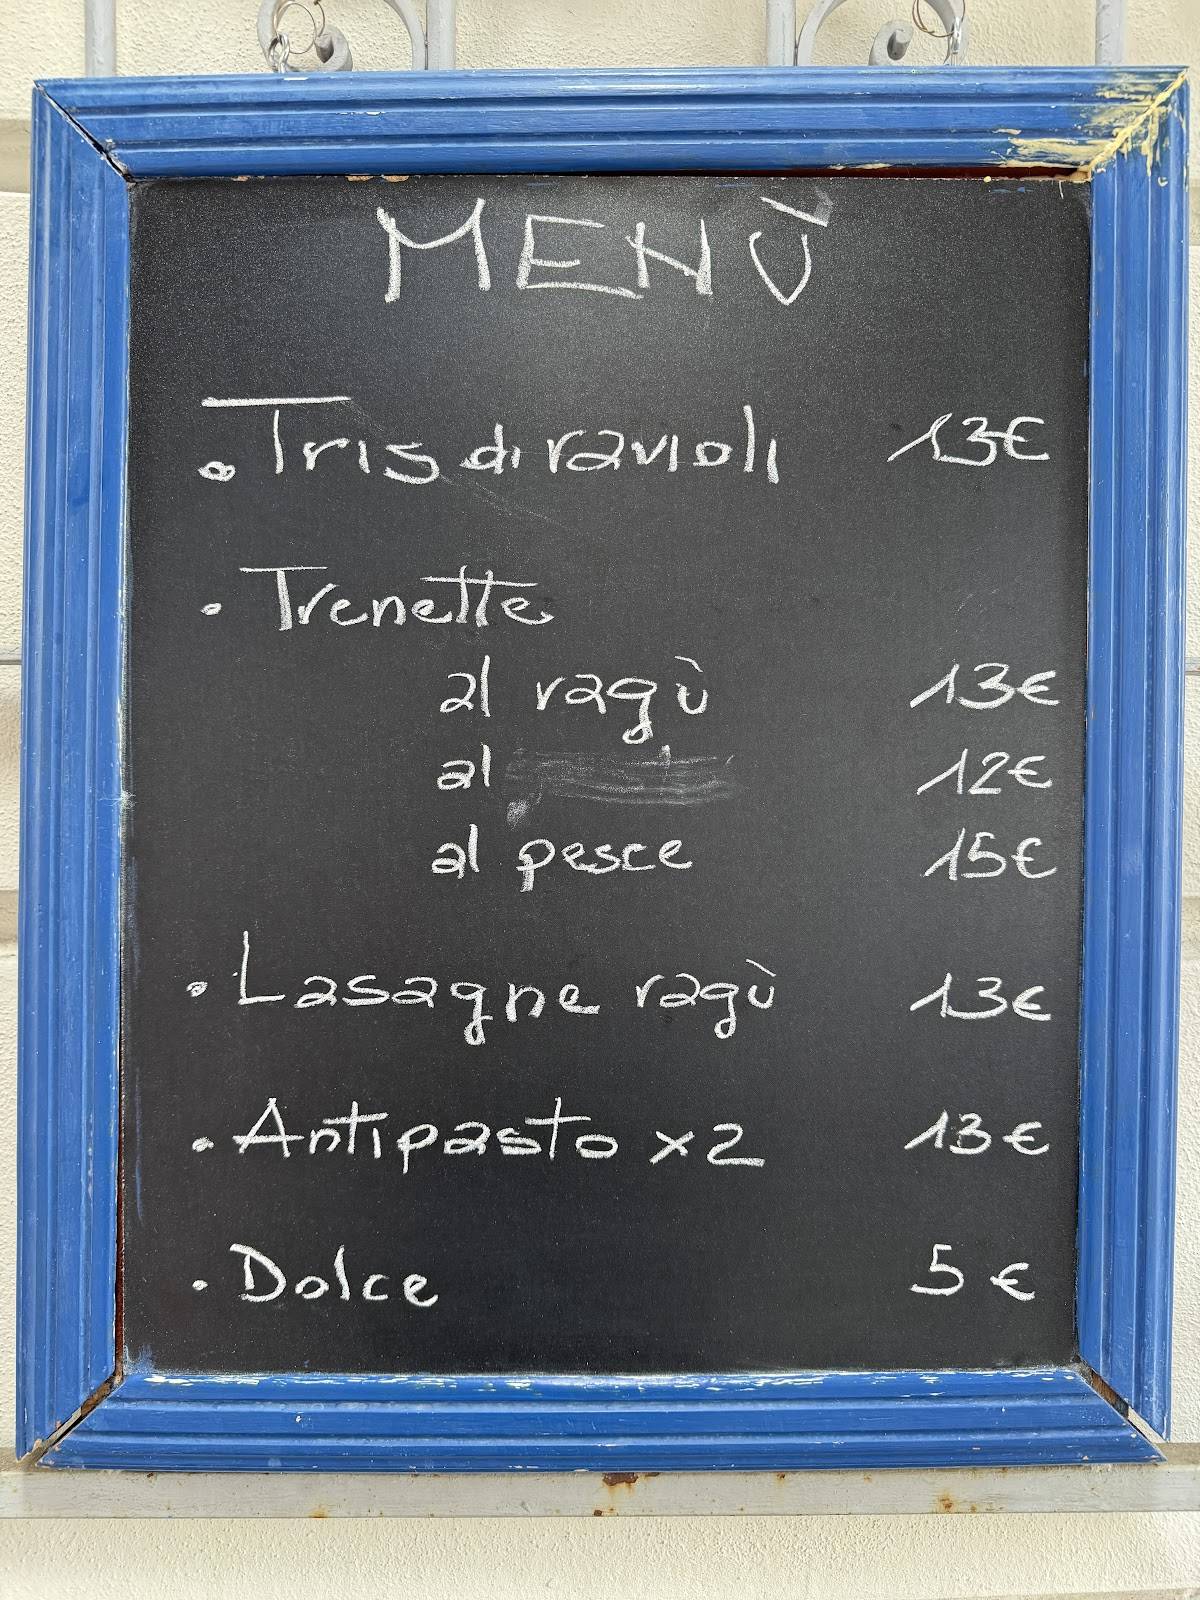 MENÙ
• Tris di ravioli 13€
• Trenette
al ragù 13€
al 12€
al pesce 15€
• Lasagne ragù 13€
• Antipasto x2 13€
• Dolce 5€